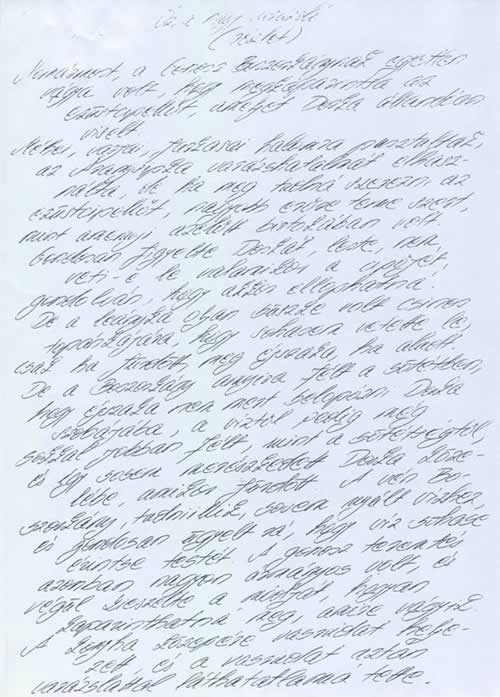 Óz, a nagy varázsló
(részlet)
Namármost, a Gonosz Boszorkánynak egyetlen
vágya volt, hogy megkaparintsa az
ezüstcipellőt, amelyet Dorka állandóan
viselt.
Méhei, varjai, farkasai halomra pusztultak,
az Aranysipka varázshatalmát elhasz-
nálta, de ha meg tudná szerezni az
ezüstcipellőt, nagyobb erőre tenne szert,
mint amennyi azelőtt birtokában volt.
Gondosan figyelte Dorkát, leste, nem
veti-e le valamikor a cipőjét,
gondolván, hogy akkor ellophatná.
De a leányka olyan büszke volt csinos
topánkájára, hogy sohasem vetette le,
csak ha fürdött, meg éjszaka, ha aludt.
De a Boszorkány annyira félt a sötétben,
hogy éjszaka nem mert belopózni Dorka
szobájába, a víztől pedig még
sokkal jobban félt, mint a sötétségtől,
és így sosem merészkedett Dorka köze-
lébe, amikor fürdött. A vén Bo-
szorkány, tudniillik, sosem nyúlt vízhez,
és gondosan ügyelt rá, hogy víz sohase
érintse testét. A gonosz teremtés
azonban nagyon ármányos volt, és
végül kieszelte a módját, hogyan
kaparinthatná meg, amire vágyik.
A konyha közepére vasrudat helye-
zett, és a vasrudat aztán
varázslattal láthatatlanná tette.